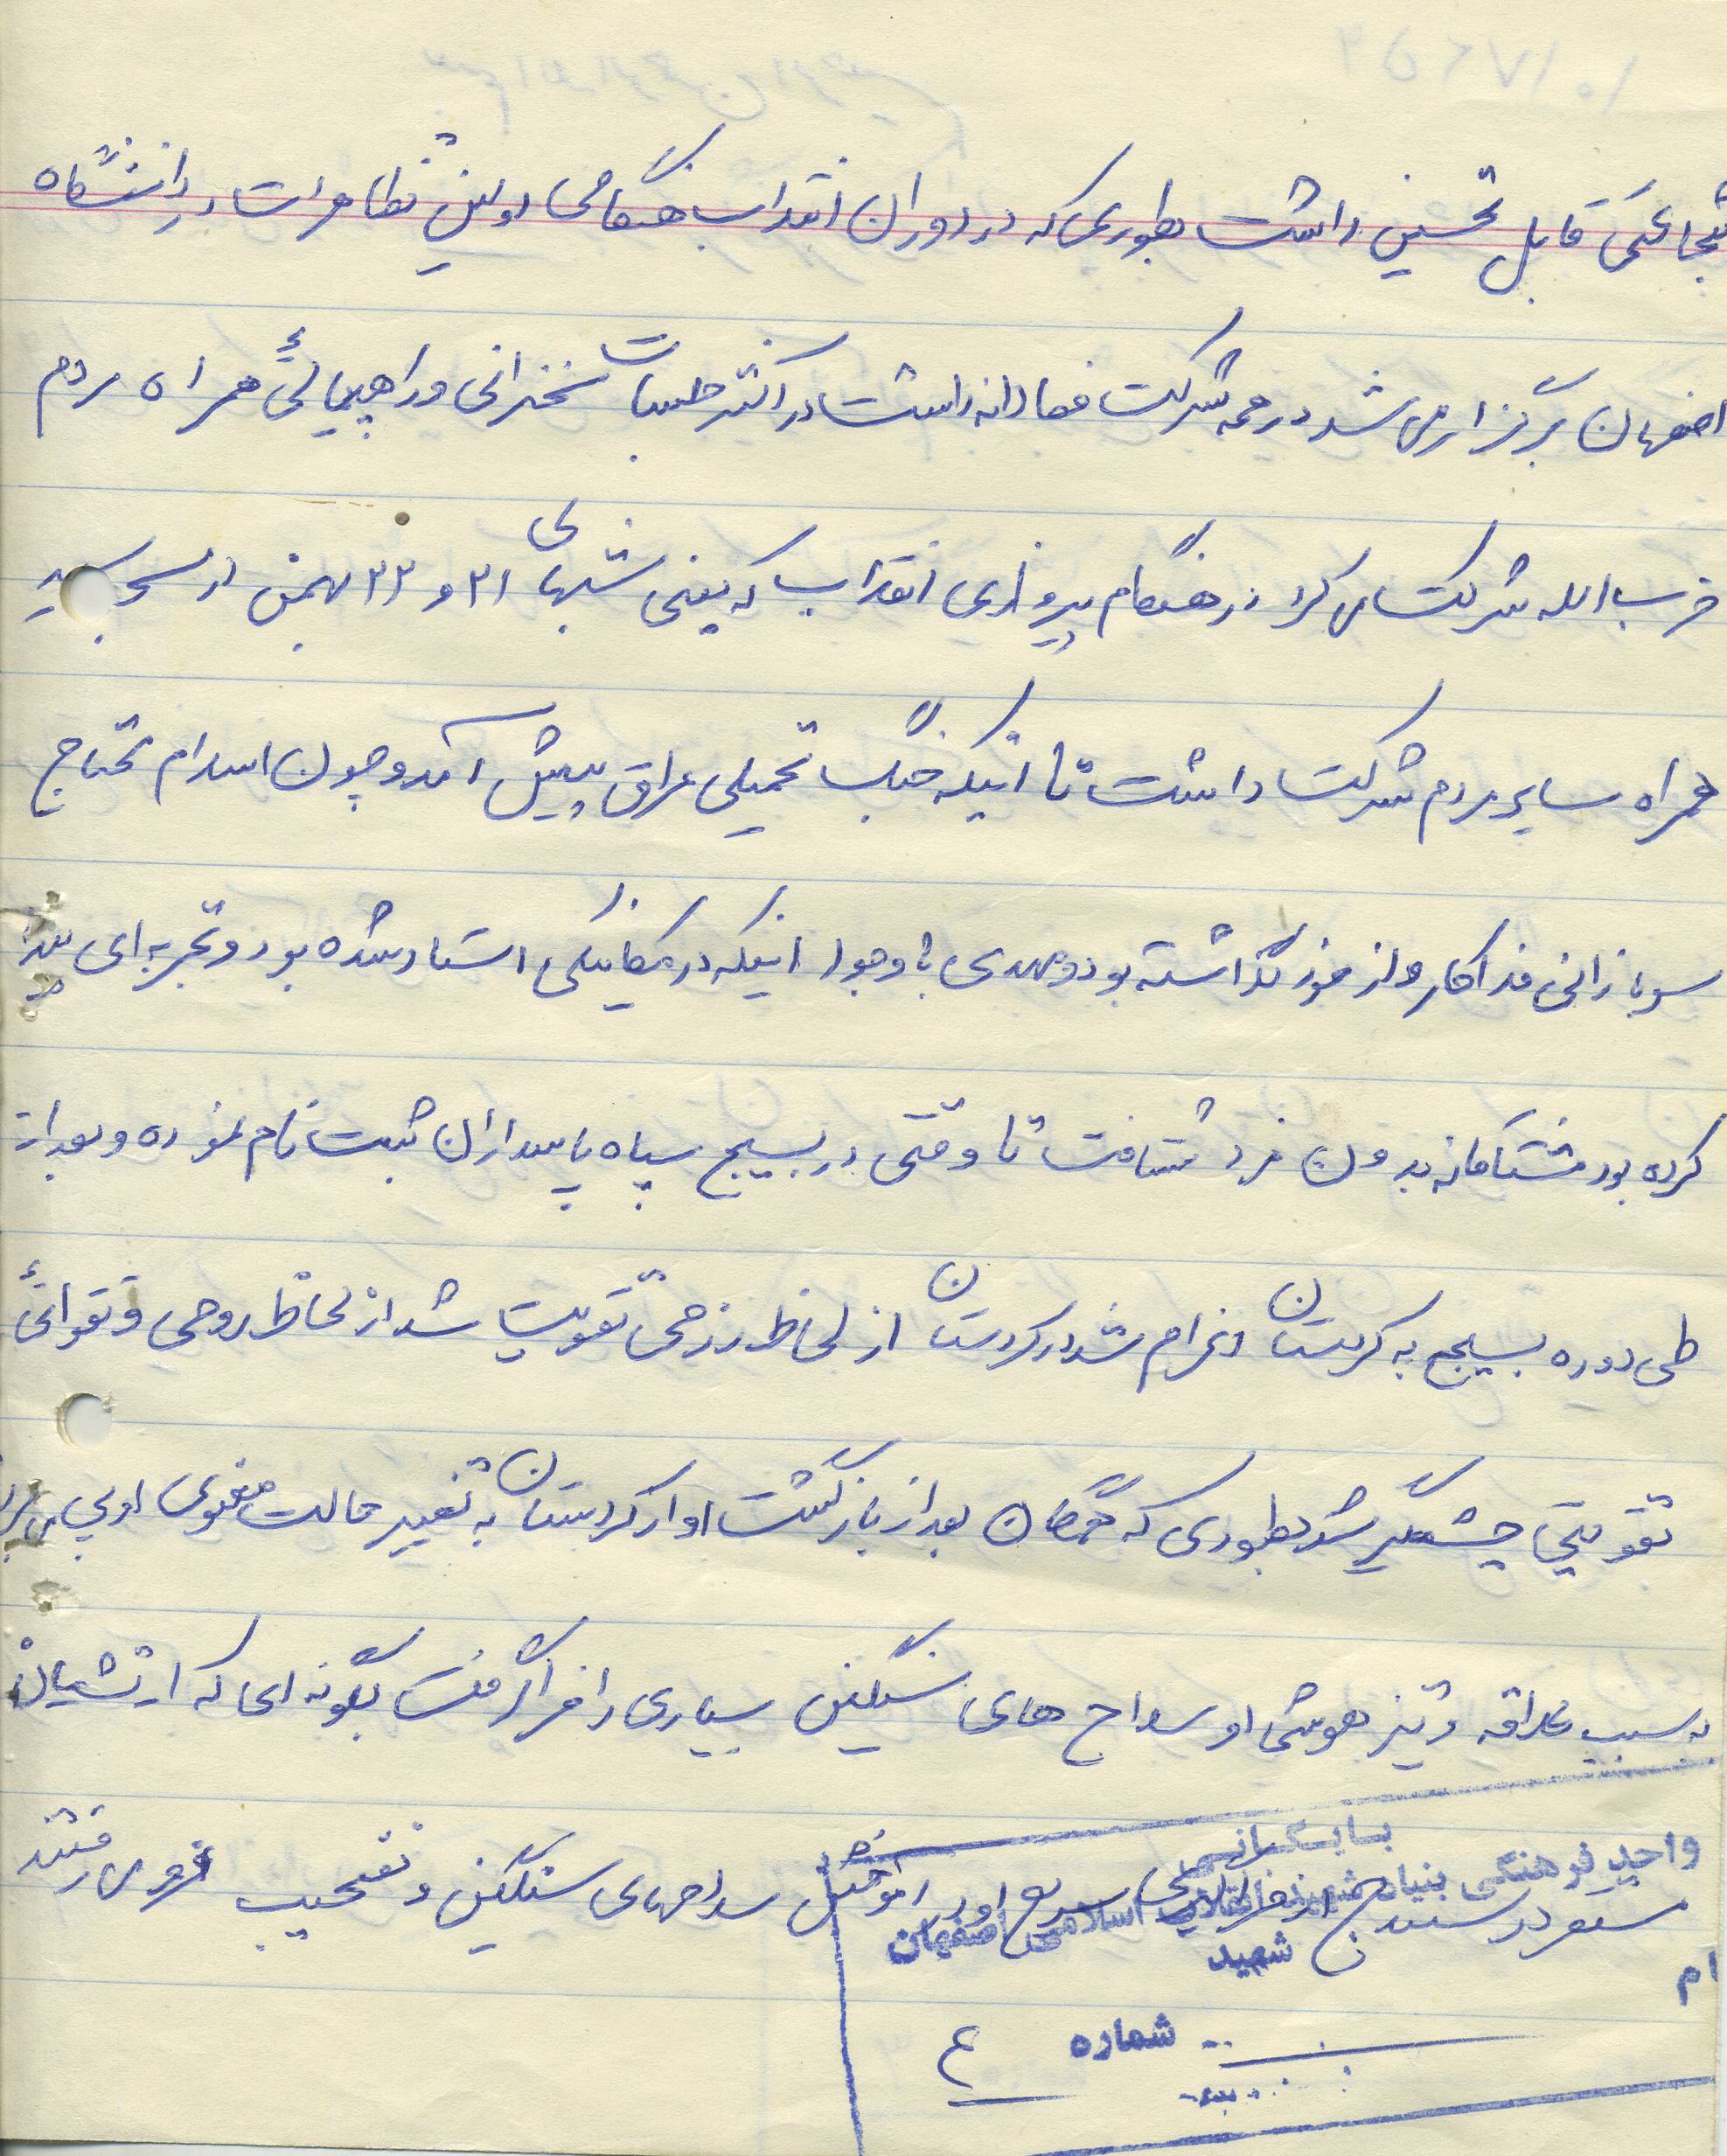 شجاعتی قابل تحسین داشت بطوری که در دوران انقلاب هنگامی اولین تظاهرات در دانشگاه
اصفهان برگزار می شد در همه شرکت فعالانه داشت در اکثر جلسات سخنرانی و راهپیمائی همراه مردم
حزب الله شرکت می کرد در هنگام پیروزی انقلاب که یعنی شبهای ۲۱ و ۲۲ بهمن در مسجد سید
همراه سایر مردم شرکت داشت تا اینکه جنگ تحمیلی عراق پیش آمد و چون اسلام محتاج
سربازانی فداکار و از خود گذاشته بود و مهدی با وجود اینکه در مکانیکی استاد شده بود و تجربه ای پیدا
کرده بود مشتاقانه بدون مزد شتافت تا وقتی در بسیج سپاه پاسداران ثبت نام نموده و بعد از
طی دوره بسیج به کردستان اعزام شد در کردستان از لحاظ رزمی تقویت شد از لحاظ روحی و تقوائی
تقویتی چشمگیر شد بطوری که همگان بعد از بازگشت او از کردستان به تغییر حالت معنوی او پی می بردند
به سبب علاقه و تیز هوشی او سلاح های سنگین بسیاری را فرا گرفت بگونه ای که ارتشیان
مستقر در سنندج از فراگیری سریع او در آموختن سلاحهای سنگین در تعجب فرو می رفتند
بایگانی
واحد فرهنگی بنیاد شهید انقلاب اسلامی اصفهان
شهید
ام
شماره ۴